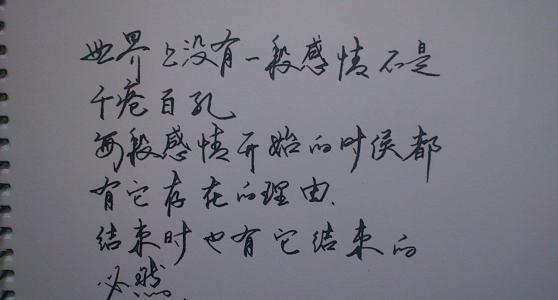 世界上没有一段感情不是
千疮百孔
每段感情开始的时侯都
有它存在的理由.
结束时也有它结束的
必然.